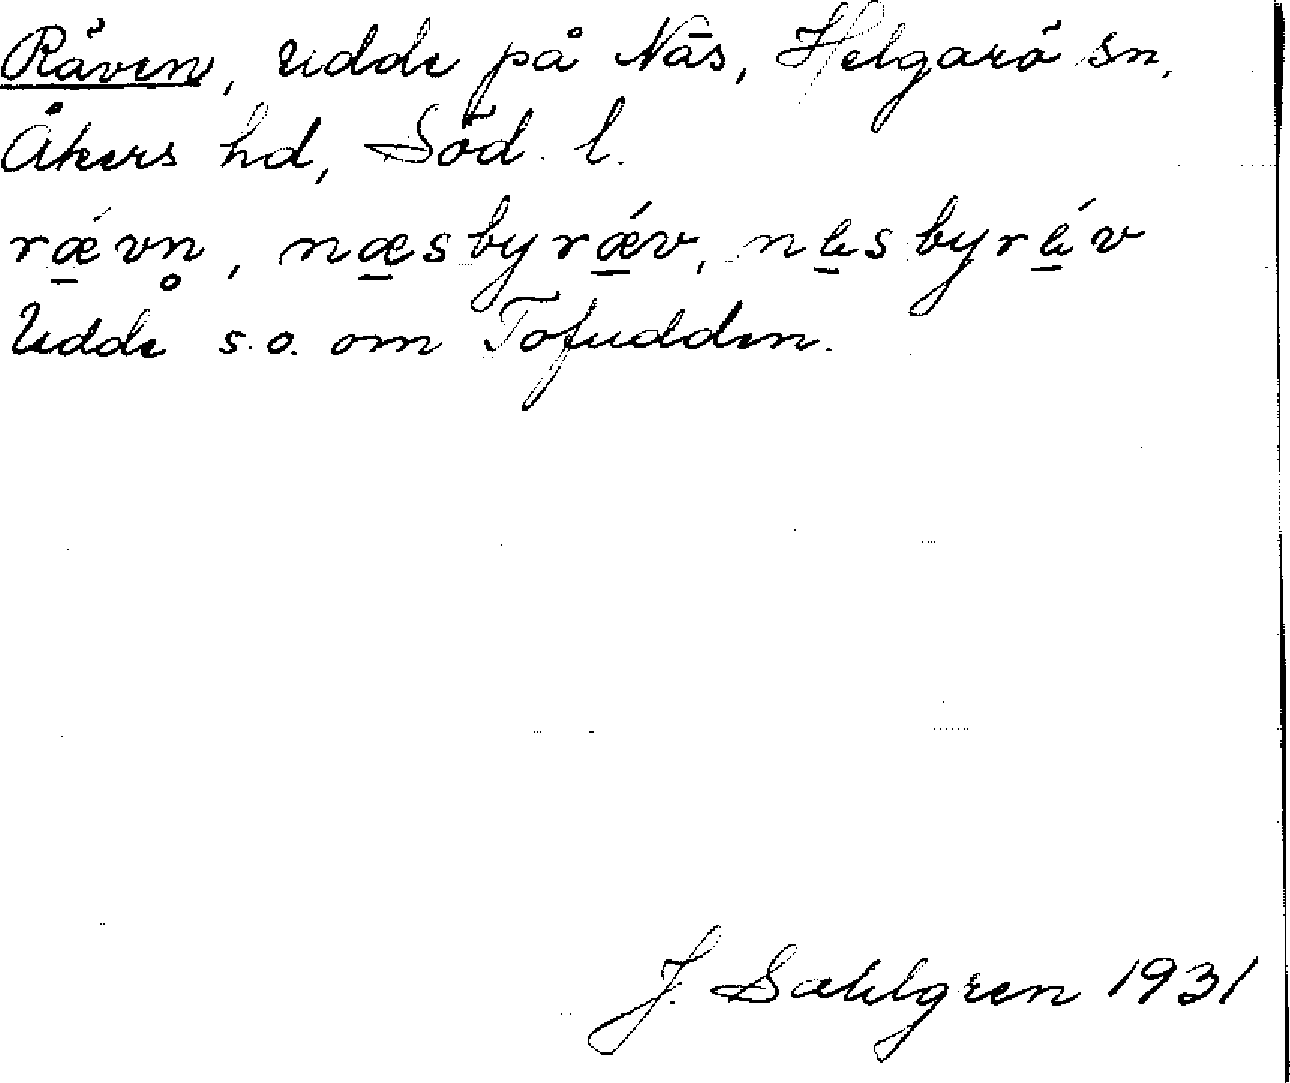 Räven, udde på Näs, Helgarö sn,
Åkers hd, Söd. l.
rǽ̱vn̥, næ̱sbyrǽ̱v, na̱sbyrá̱v
Udde s.o. om Tofudden.
J. Sahlgren 1931